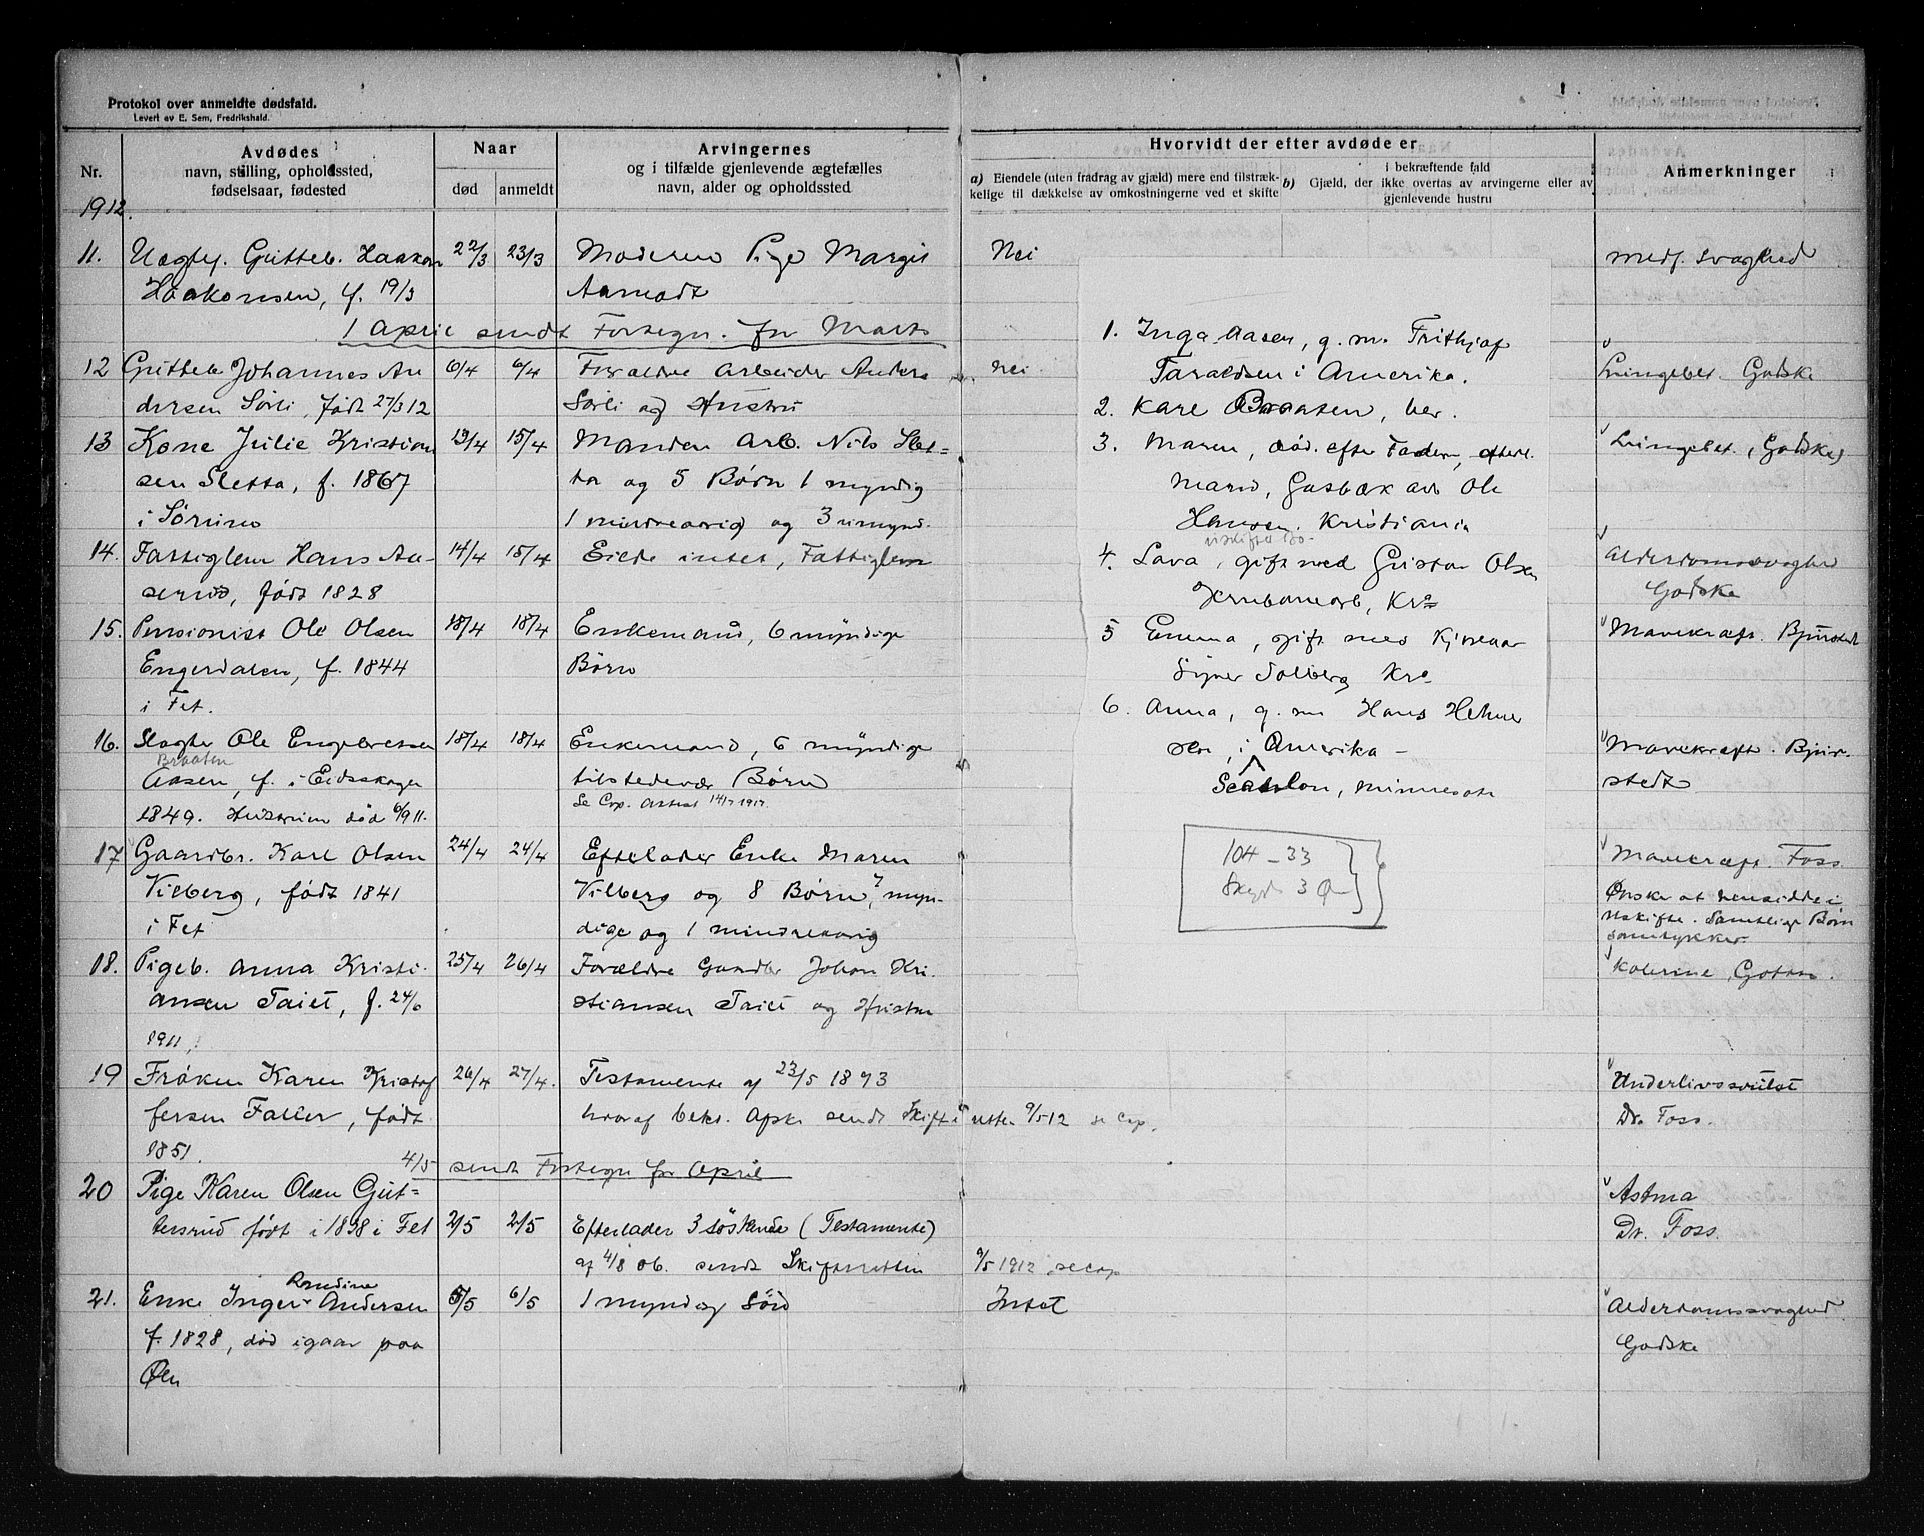 Protokol over anmeldte dødsfald.
Levert av E. Sem, Fredrikshald.
Nr.
Avdødes
navn, stilling, opholdssted,
fødselsaar, fødested
Naar
død
anmeldt
Arvingernes
og i tilfælde gjenlevende ægtefælles
navn, alder og opholdssted
Hvorvidt der efter avdøde er
a) Eiendele (uten fradrag av gjæld) mere end tilstræk-
kelige til dækkelse av omkostningerne ved et skifte
b) Gjæld, der
i bekræftende fald
ikke overtas av arvingerne eller av
gjenlevende hustru
Anmerkninger
1912.
11. Uægtef. Gutteb. Haakon 22/3 23/3 Moderen Pige Margit Nei medf. svaghed
Haakonsen, f. 19/3 Aamodt
1 April sendt Fortegn. for Marts
12 Gutteb. Johannes An 6/4 6/4 Forældre Arbeider Anders Nei Lungebet. Godske
dersen Sørli, født 27/3 12 Sørli og Hustru
13 Kone Julie Kristian 13/4 15/4 Manden Arb. Nils Slet= Lungebet. (Godske)
sen Sletta, f. 1867 ta og 5 Børn 1 myndig
i Sørum 1 mindreaarig og 3 umynd.
14. Fattiglem Hans An- 14/4 15/4 Eiede intet, Fattiglem Alderdomssvaghed
født 1828 Godske
15. Pensionist Ole Olsen 18/4 18/4 Enkemand, 6 myndige Mavekræft. Bjurstedt
Engerdalen, f. 1844 Børn
i Fet.
16. Slagter Ole Engebretsen 18/4 18/4 Enkemand, 6 myndige Mavekræft. Bjur-
Braaten
Aasen, f. i Eidsskogen tilstedevær Børn stedt
1849. Hustruen død 6/9 11. Se Cop. Attest 14/7 1917.
17 Gaardbr. Karl Olsen 24/4 24/4 Efterlader Enke Maren Mavekræft Foss
Vilberg, født 1841 Vilberg og 8 Børn, 7 myn- Ønsker at hensidde i
i Fet dige og 1 mindreaarig Uskifte. Samtlige Børn
samtykker.
18. Pigeb. Anna Kristi- 25/4 26/4 Forældre Gaardbr Johan Kri- Kolerine, Godske.
ansen Taiet, f. 24/6 stiansen Taiet og Hustru
1911.
19 Frøken Karen Kristof 26/4 27/4. Testamente af 23/5 1893 Underlivssvulst
fersen Faller, født hvoraf bekr. Afskr sendt Skifteretten 9/5 12 se Cop. Dr. Foss.
1851.
4/5 sendt Fortegn for April
20 Pige Karen Olsen Gut= Astma
tersrud født i 1838 i Fet 2/5 2/5 Efterlader 3 søskende (Testamente) Dr. Foss.
af 4/8 06. sendt Skifteretten 9/5 1912 se Cop
Randine
21. Enke Inger Andersen 5/5 6/5 1 myndig Søn Intet Alderdomssvaghed
f. 1828, død igaar paa Godske
Øen
1. Inga Aasen, g. m. Frithjof
Taraldsen i Amerika.
2. Karl Braaten, her.
3. Maren, død. efter Faderen, efterl.
Mand, Gasbek arb Ole
Hansen. Kristiania
uskiftet Bo.
4. Lava, gift med Gustav Olsen
Jernbanearb, Kra
5 Emma, gift med
Solberg Kra
6. Anna, g. m Hans Helmer
sen, i Amerika –
Scanlon, Minnesota
104 – 33
Skyld 3 Øre